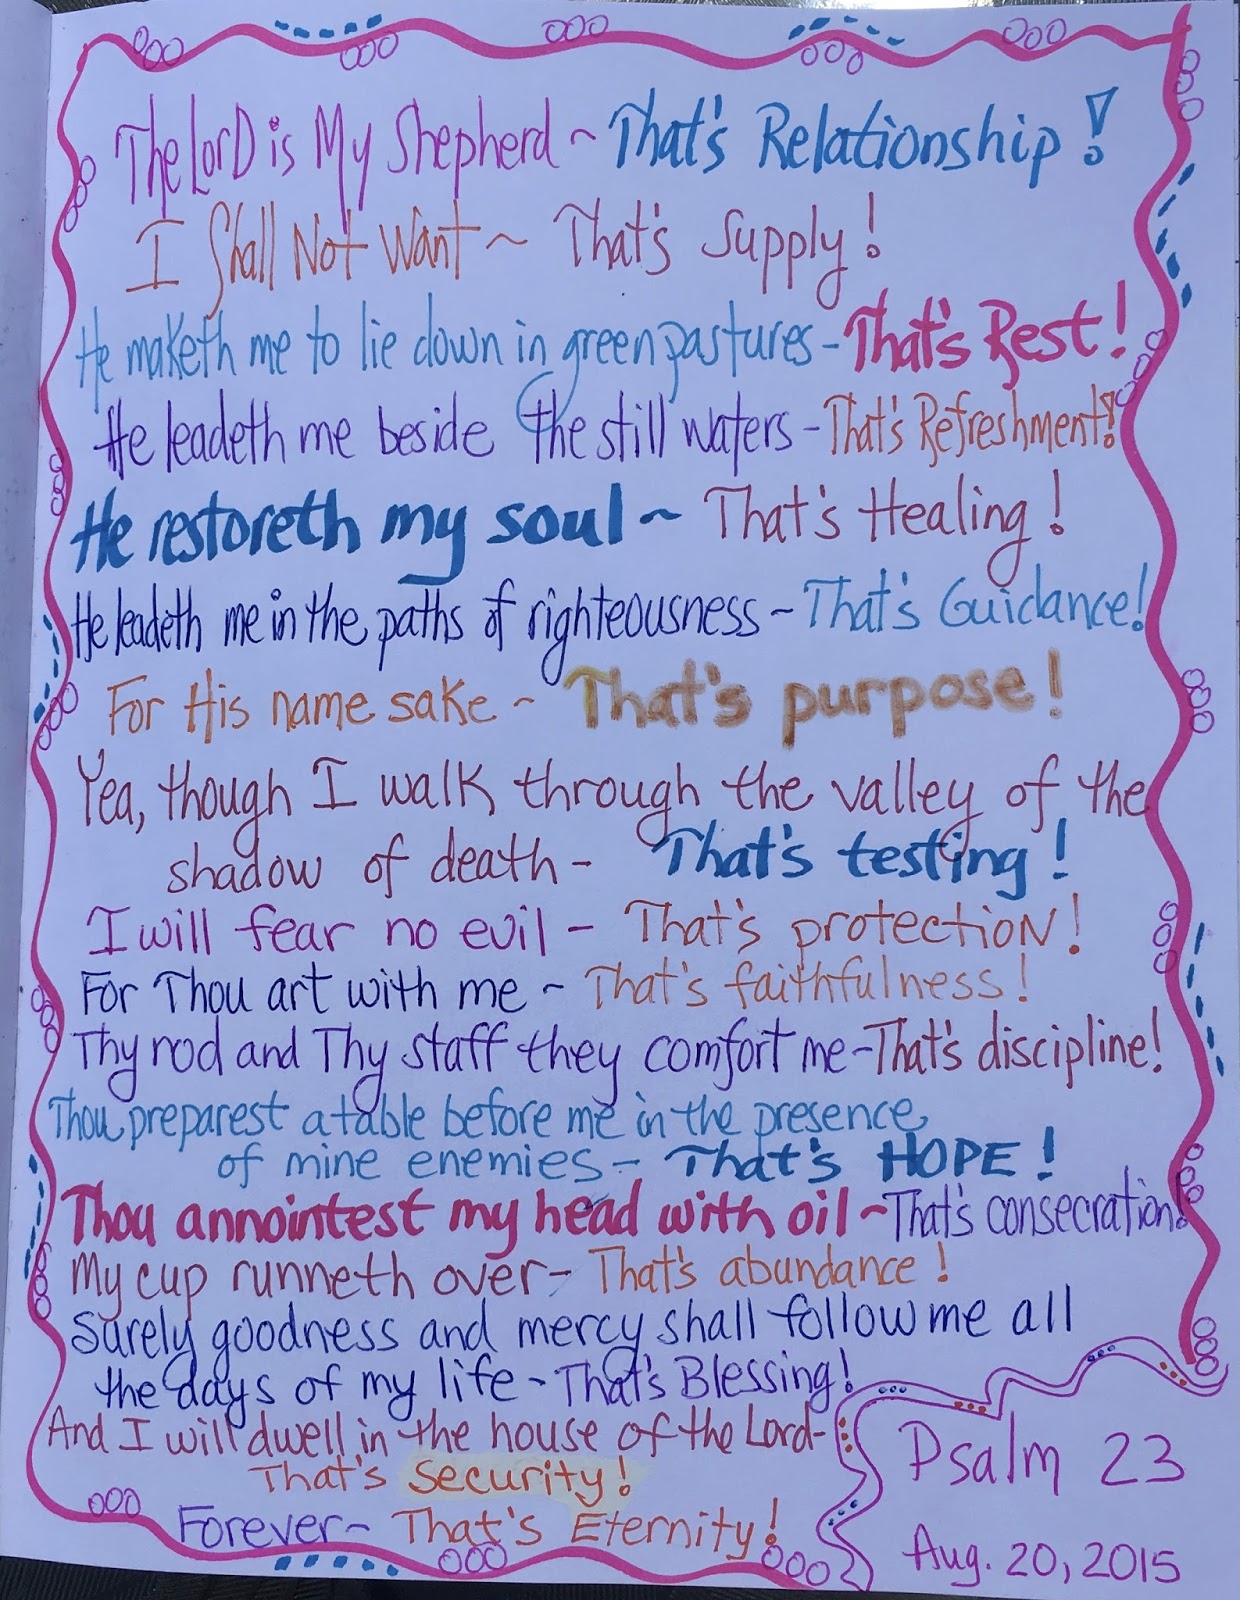 The Lord is My Shepherd ~ That's Relationship!
I Shall Not Want ~ That's Supply!
He maketh me to lie down in green pastures - That's Rest!
He leadeth me beside the still waters - That's Refreshment!
He restoreth my soul ~ That's Healing!
He leadeth me in the paths of righteousness ~ That's Guidance!
For His name sake ~ That's purpose!
Yea, though I walk through the valley of the
shadow of death - That's testing!
I will fear no evil - That's protection!
For Thou art with me ~ That's faithfulness!
Thy rod and Thy staff they comfort me - That's discipline!
Thou preparest a table before me in the presence
of mine enemies - That's HOPE!
Thou annointest my head with oil ~ That's consecration!
My cup runneth over - That's abundance!
Surely goodness and mercy shall follow me all
the days of my life - That's Blessing!
And I will dwell in the house of the Lord -
That's Security!
Forever ~ That's Eternity!
Psalm 23
Aug. 20, 2015